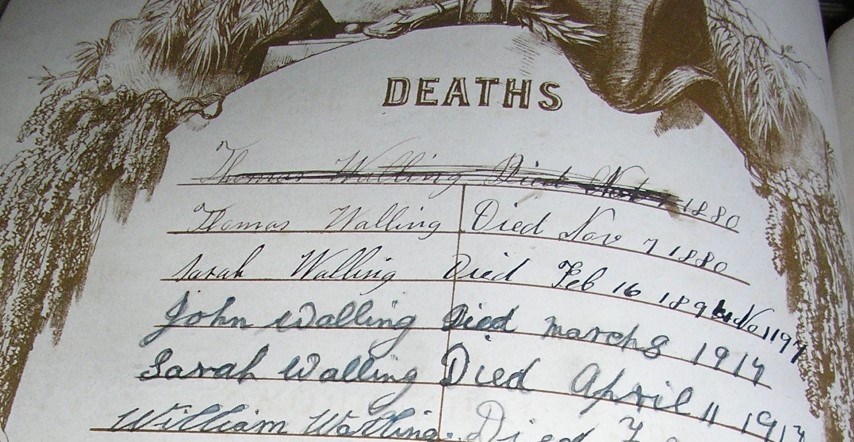 DEATHS
Thomas Walling Died Nov 7 1880
Thomas Walling Died Nov 7 1880
Sarah Walling Died Feb 16
John Walling Died march 8 1917
Sarah Walling Died April 11
William Walling. Died